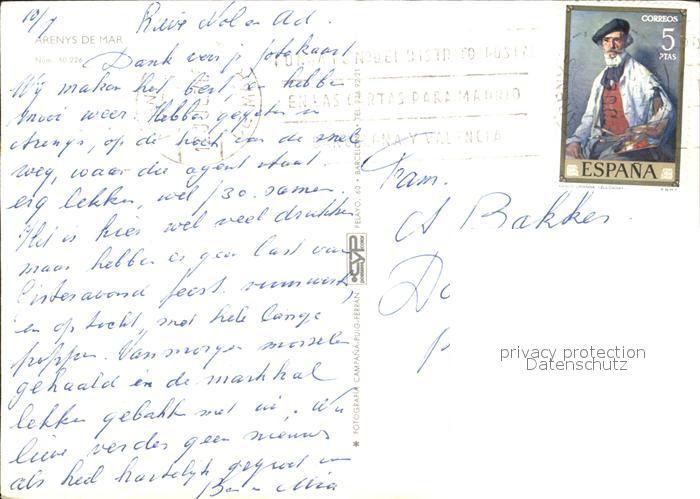 10/7 Lieve Nol en Ad.
ARENYS DE MAR
Núm. 10.226
Dank voor je fotokaart
Wij maken het best, en hebben
mooi weer. Hebben gegeten in
Arenys, op de hoek van de
weg, waar die agent staat.
erg lekker, wel f 30. samen.
Het is hier wel veel drukker
maar hebben er geen last van
Gisteravond feest. vuurwerk,
en optocht, met hele lange
poppen. Vanmorgen mosselen
gehaald in de markthal
lekker gebakken met ui. Nu
lieve verder geen nieuws
als heel hartelijk gegroet van
Ben en Mia
FOTOGRAFIA CAMPAÑA-PUIG-FERRAN
CYP
PELAYO, 60 • BARCELONA • TEL.
EN LAS CARTAS PARA MADRID
BARCELONA Y VALENCIA
CORREOS
5
PTAS
ESPAÑA
Fam.
A Bakker.
privacy protection
Datenschutz